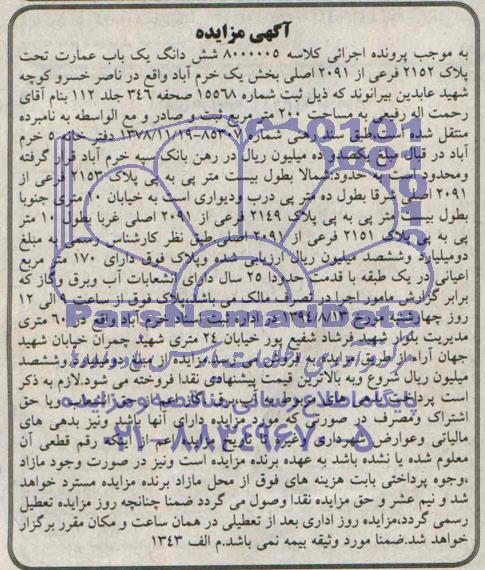 آگهی مزایده
به موجب پرونده اجرائی کلاسه ۸۰۰۰۰۰۵ شش دانگ یک باب عمارت تحت
پلاک ۲۱۵۲ فرعی از ۲۰۹۱ اصلی بخش یک خرم آباد واقع در ناصر خسرو کوچه
شهید عابدین بیرانوند که ذیل ثبت شماره ۱۵۵۶۸ صفحه ۳٤٦ جلد ۱۱۲ بنام آقای
رحمت اله رفیعی به مساحت ۲۰۰ متر مربع ثبت و صادر و مع الواسطه به نامبرده
منتقل شده است طبق سند رهنی شماره ۸۵۳۰۷-۱۳۷۸/۱۱/۱۹ دفتر خانه ۵ خرم
آباد در قبال مبلغ یکصدو ده میلیون ریال در رهن بانک سپه خرم آباد قرار گرفته
ومحدود است به حدود:شمالا بطول بیست متر پی به پی پلاک ۲۱۵۳ فرعی از
۲۰۹۱ اصلی شرقا بطول ده متر پی درب ودیواری است به خیابان ۲۰ متری جنوبا
بطول بیست متر پی به پی پلاک ۲۱٤۹ فرعی از ۲۰۹۱ اصلی غربا بطول ۱۰ متر
پی به پی پلاک ۲۱۵۱ فرعی از ۲۰۹۱ اصلی طبق نظر کارشناس رسمی به مبلغ
دومیلیارد وششصد میلیون ریال ارزیابی شده وپلاک فوق دارای ۱۷۰ متر مربع
اعیانی در یک طبقه با قدمت حدودا ۲۵ سال دارای انشعابات آب وبرق وگاز که
برابر گزارش مامور اجرا در تصرف مالک می باشد.پلاک فوق از ساعت ۹ الی ۱۲
روز چهارشنبه مورخ ۱۳۹٤/۸/۱۳ در اداره ثبت اسناد خرم آباد واقع در ٦۰ متری
مدیریت بلوار شهید فرشاد شفیع پور خیابان ۲٤ متری شهید چمران خیابان شهید
جهان آرا از طریق مزایده به فروش می رسد.مزایده از مبلغ دومیلیارد وششصد
میلیون ریال شروع وبه بالاترین قیمت پیشنهادی نقدا فروخته می شود.لازم به ذکر
است پرداخت بدهی های مربوط به آب،برق،گاز اعم از حق انشعاب ویا حق
اشتراک ومصرف در صورتی که مورد مزایده دارای آنها باشد ونیز بدهی های
مالیاتی وعوارض شهرداری وغیره تا تاریخ مزایده اعم از اینکه رقم قطعی آن
معلوم شده یا نشده باشد به عهده برنده مزایده است ونیز در صورت وجود مازاد
،وجوه پرداختی بابت هزینه های فوق از محل مازاد برنده مزایده مسترد خواهد
شد و نیم عشر و حق مزایده نقدا وصول می گردد ضمنا چنانچه روز مزایده تعطیل
رسمی گردد،مزایده روز اداری بعد از تعطیلی در همان ساعت و مکان مقرر برگزار
خواهد شد.ضمنا مورد وثیقه بیمه نمی باشد.م الف ۱۳٤۳
ParsNamadData
پایگاه اطلاع رسانی مناقصه و مزایده
۰۲۱-۸۸۳٤۹٦۷۰-۵